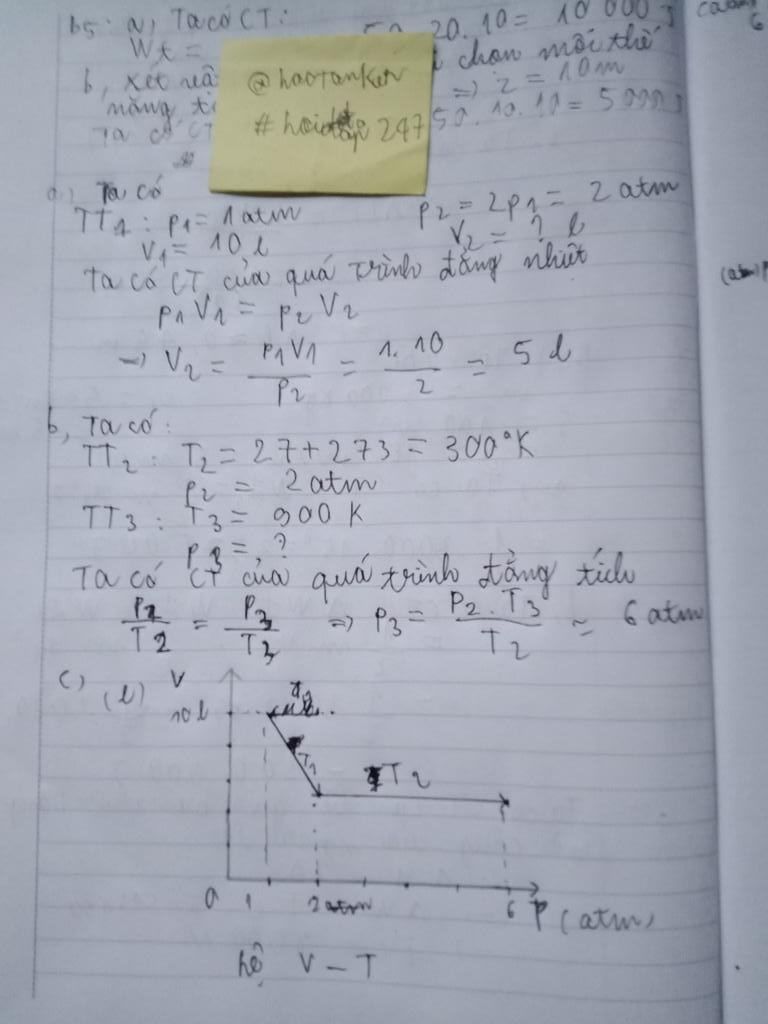 b5: a, Ta có CT:
50.20.10 = 10 000 J
Wt =
chọn mốc thế
b, xét
=> z = 10m
năng,
Ta có CT
50.10.10 = 5000 J
@haotanken
# hoidap 247
a) Ta có
TT1: p1 = 1 atm
p2 = 2p1 = 2 atm
V1 = 10 l
V2 = ? l
Ta có CT của quá trình đẳng nhiệt
p1 V1 = p2 V2
-> V2 = p1V1 / p2 = 1.10 / 2 = 5 l
b, Ta có:
TT2: T2 = 27 + 273 = 300°K
p2 = 2 atm
TT3: T3 = 900 K
p3 = ?
Ta có CT của quá trình đẳng tích
p2 / T2 = p3 / T3 => p3 = p2 . T3 / T2 = 6 atm
c) (l) V
10 l
T1
T2
0 1 2atm 6 P (atm)
hệ V - T